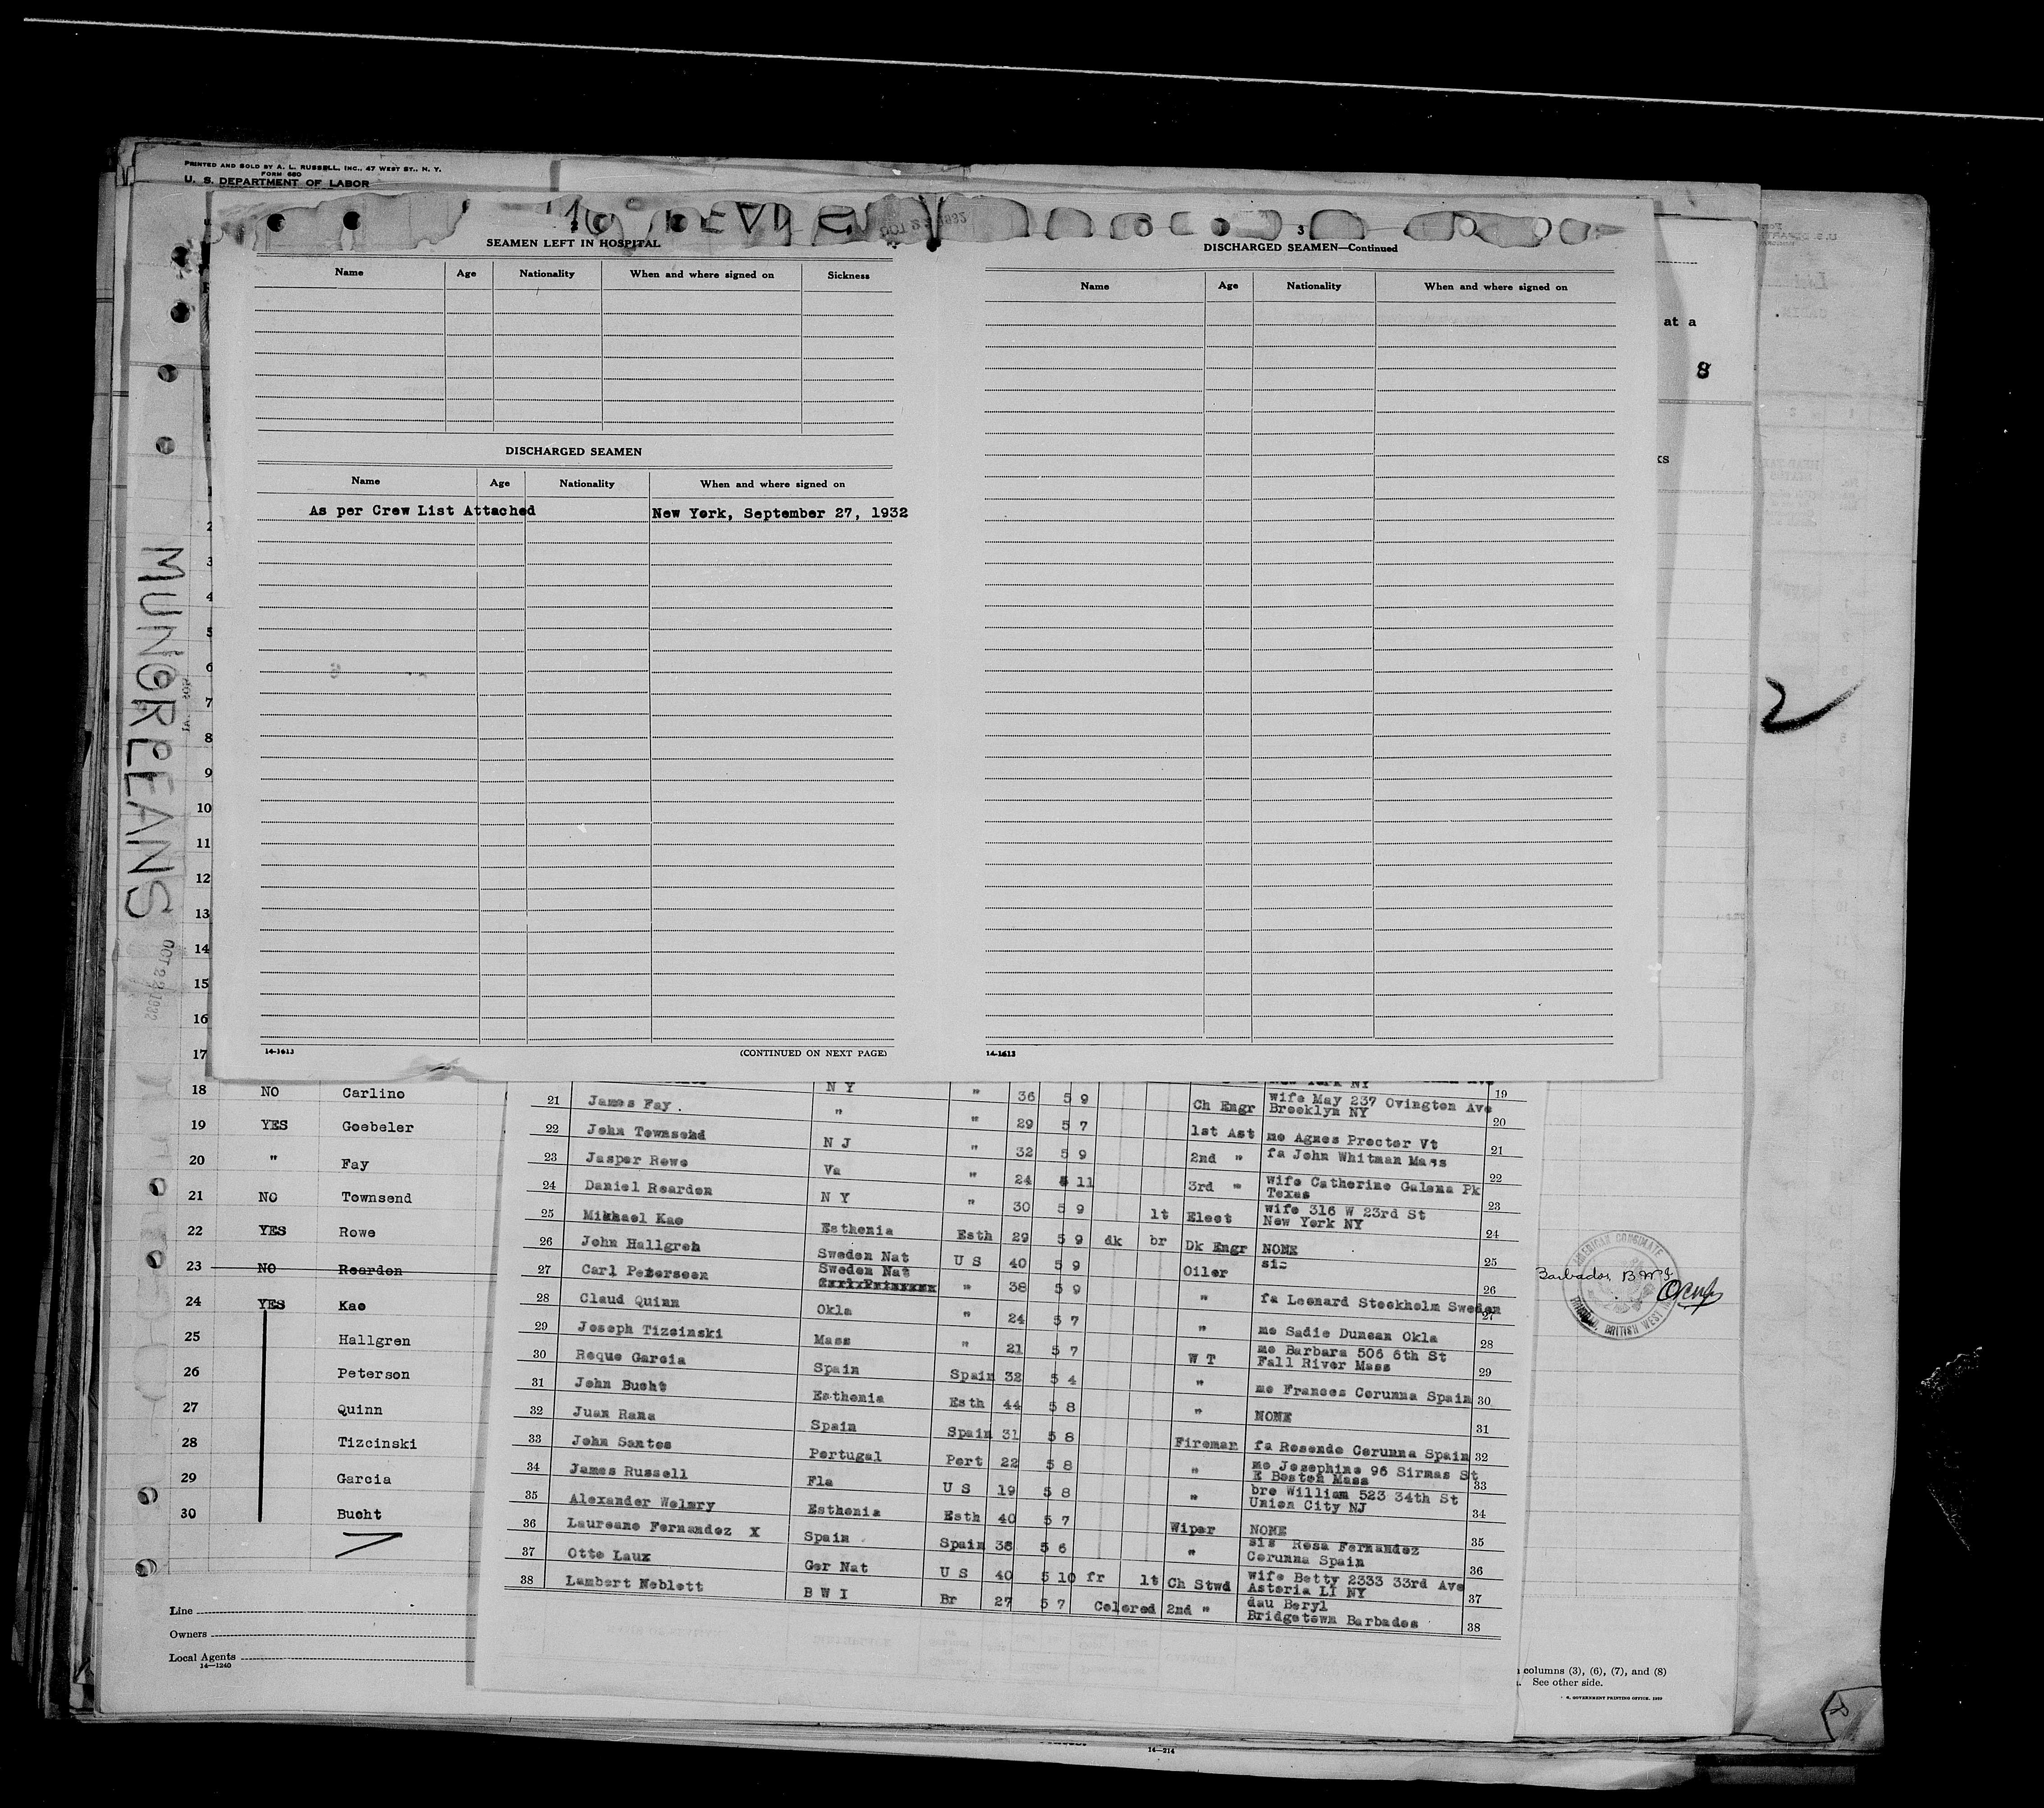 PRINTED AND SOLD BY A. L. RUSSELL, INC., 47 WEST ST., N. Y.
FORM 680
U. S. DEPARTMENT OF LABOR
SEAMEN LEFT IN HOSPITAL
Name Age Nationality When and where signed on Sickness
DISCHARGED SEAMEN
Name Age Nationality When and where signed on
As per Crew List Attached New York, September 27, 1932
14-1613
(CONTINUED ON NEXT PAGE)
3
DISCHARGED SEAMEN—Continued
Name Age Nationality When and where signed on
14-1613
at a
8
ks
2
MUNORLEANS
OCT 22 1932
2
3
4
5
6
7
8
9
10
11
12
13
14
15
16
17
18 NO Carlino
19 YES Goebeler
20 " Fay
21 NO Townsend
22 YES Rowe
23 NO Reardon
24 YES Kao
25 Hallgren
26 Peterson
27 Quinn
28 Tizcinski
29 Garcia
30 Bucht
Line
Owners
Local Agents
14-1240
New York NY 19
21 James Fay. N Y " 36 5 9 Ch Engr wife May 237 Ovington Ave Brooklyn NY 20
22 John Townsend " " 29 5 7 1st Ast mo Agnes Procter Vt 21
23 Jasper Rowe N J " 32 5 9 2nd " fa John Whitman Mass 22
24 Daniel Reardon Va " 24 5 11 3rd " wife Catherine Galena Pk Texas 23
25 Mikhael Kao N Y " 30 5 9 lt Elect wife 316 W 23rd St New York NY 24
26 John Hallgren Esthonia Esth 29 5 9 dk br Dk Engr NONE 25
27 Carl Peterseen Sweden Nat U S 40 5 9 Oiler sis 26
28 Claud Quinn Sweden Nat " 38 5 9 " fa Leonard Stockholm Sweden 27
29 Joseph Tizcinski Okla " 24 5 7 " mo Sadie Duncan Okla 28
30 Roque Garcia Mass " 21 5 7 W T mo Barbara 506 6th St Fall River Mass 29
31 John Bucht Spain Spain 32 5 4 " mo Frances Corunna Spain 30
32 Juan Rana Esthonia Esth 44 5 8 " NONE 31
33 John Santos Spain Spain 31 5 8 Fireman fa Rosendo Corunna Spain 32
34 James Russell Portugal Port 22 5 8 " mo Josephine 96 Sirmas St E Boston Mass 33
35 Alexander Welmry Fla U S 19 5 8 " bro William 523 34th St Union City NJ 34
36 Laureano Fernandez X Esthonia Esth 40 5 7 Wiper NONE 35
37 Otto Laux Spain Spain 38 5 6 " sis Rosa Fernandez Corunna Spain 36
38 Lambert Neblett Ger Nat U S 40 5 10 fr lt Ch Stwd wife Betty 2333 33rd Ave Astoria LI NY 37
B W I Br 27 5 7 Colored 2nd " dau Beryl Bridgetown Barbados 38
AMERICAN CONSULATE
Barbados, B.W.I.
BRITISH WEST
columns (3), (6), (7), and (8)
See other side.
GOVERNMENT PRINTING OFFICE. 1929
14-214